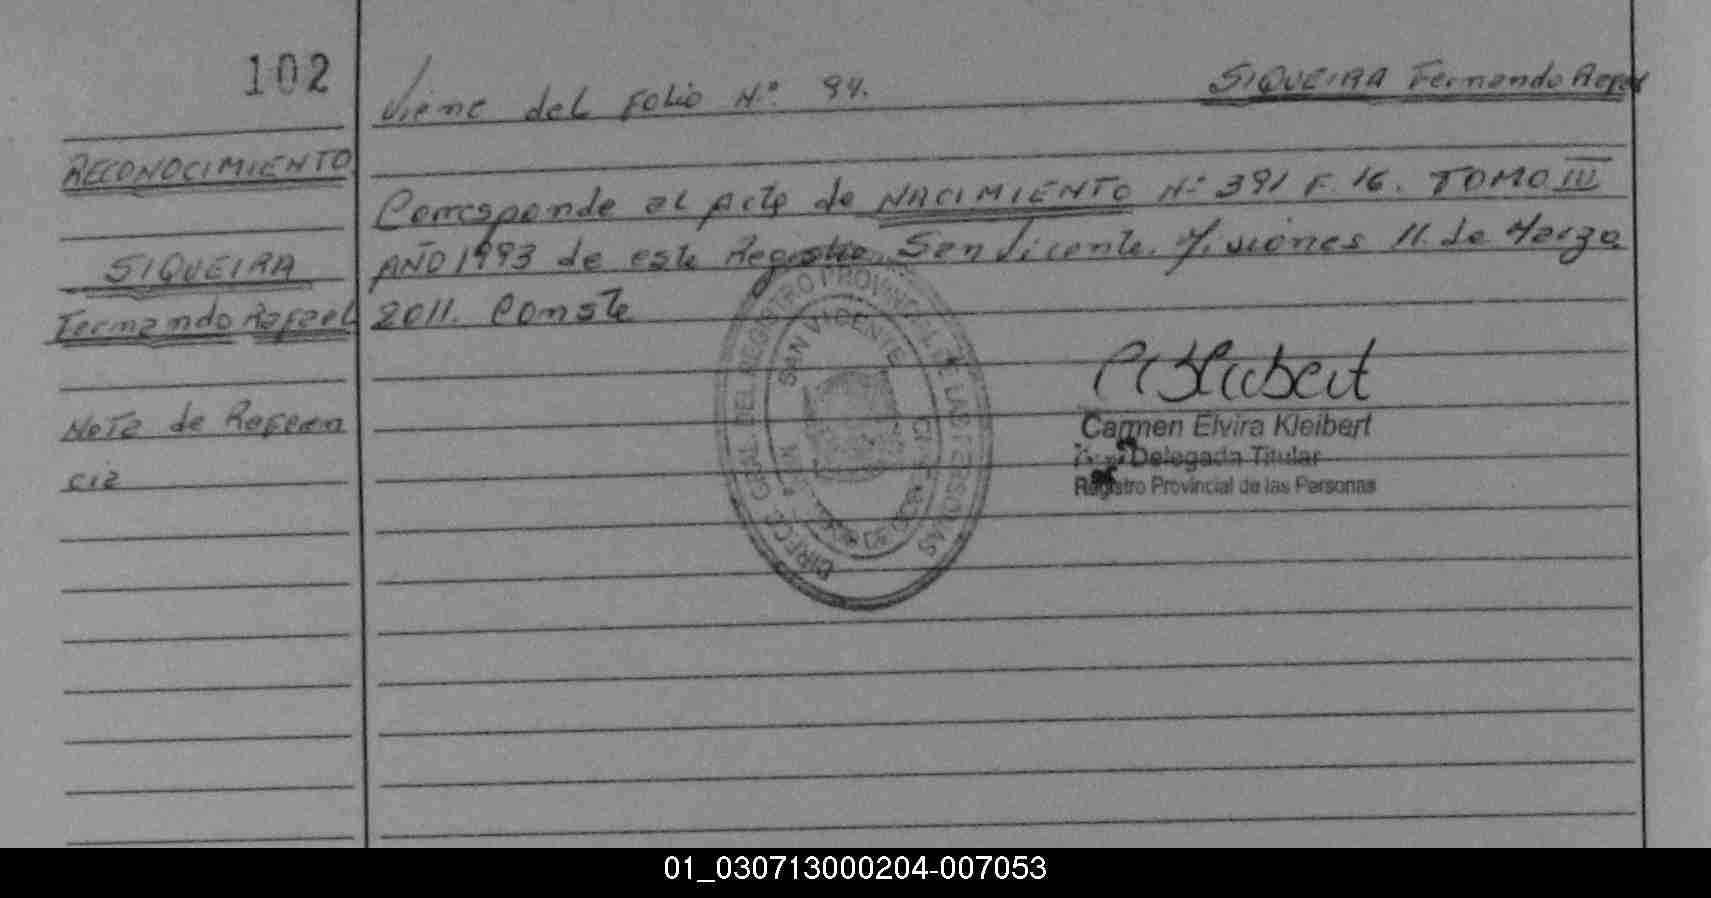 102
Viene del Folio N:° 94.
SIQUEIRA Fernando Rafael
RECONOCIMIENTO
SIQUEIRA
Fernando Rafael
Nota de Referen
cia
Corresponde al Acta de NACIMIENTO N:° 391 F. 16. TOMO III
AÑO 1993 de este Registro San Vicente. Misiones 11. de Marzo
2011. Conste
DIRECC. GRAL. DEL REGISTRO PROVINCIAL DE LAS PERSONAS
SAN VICENTE
Carmen Elvira Kleibert
Delegada Titular
Registro Provincial de las Personas
01_030713000204-007053